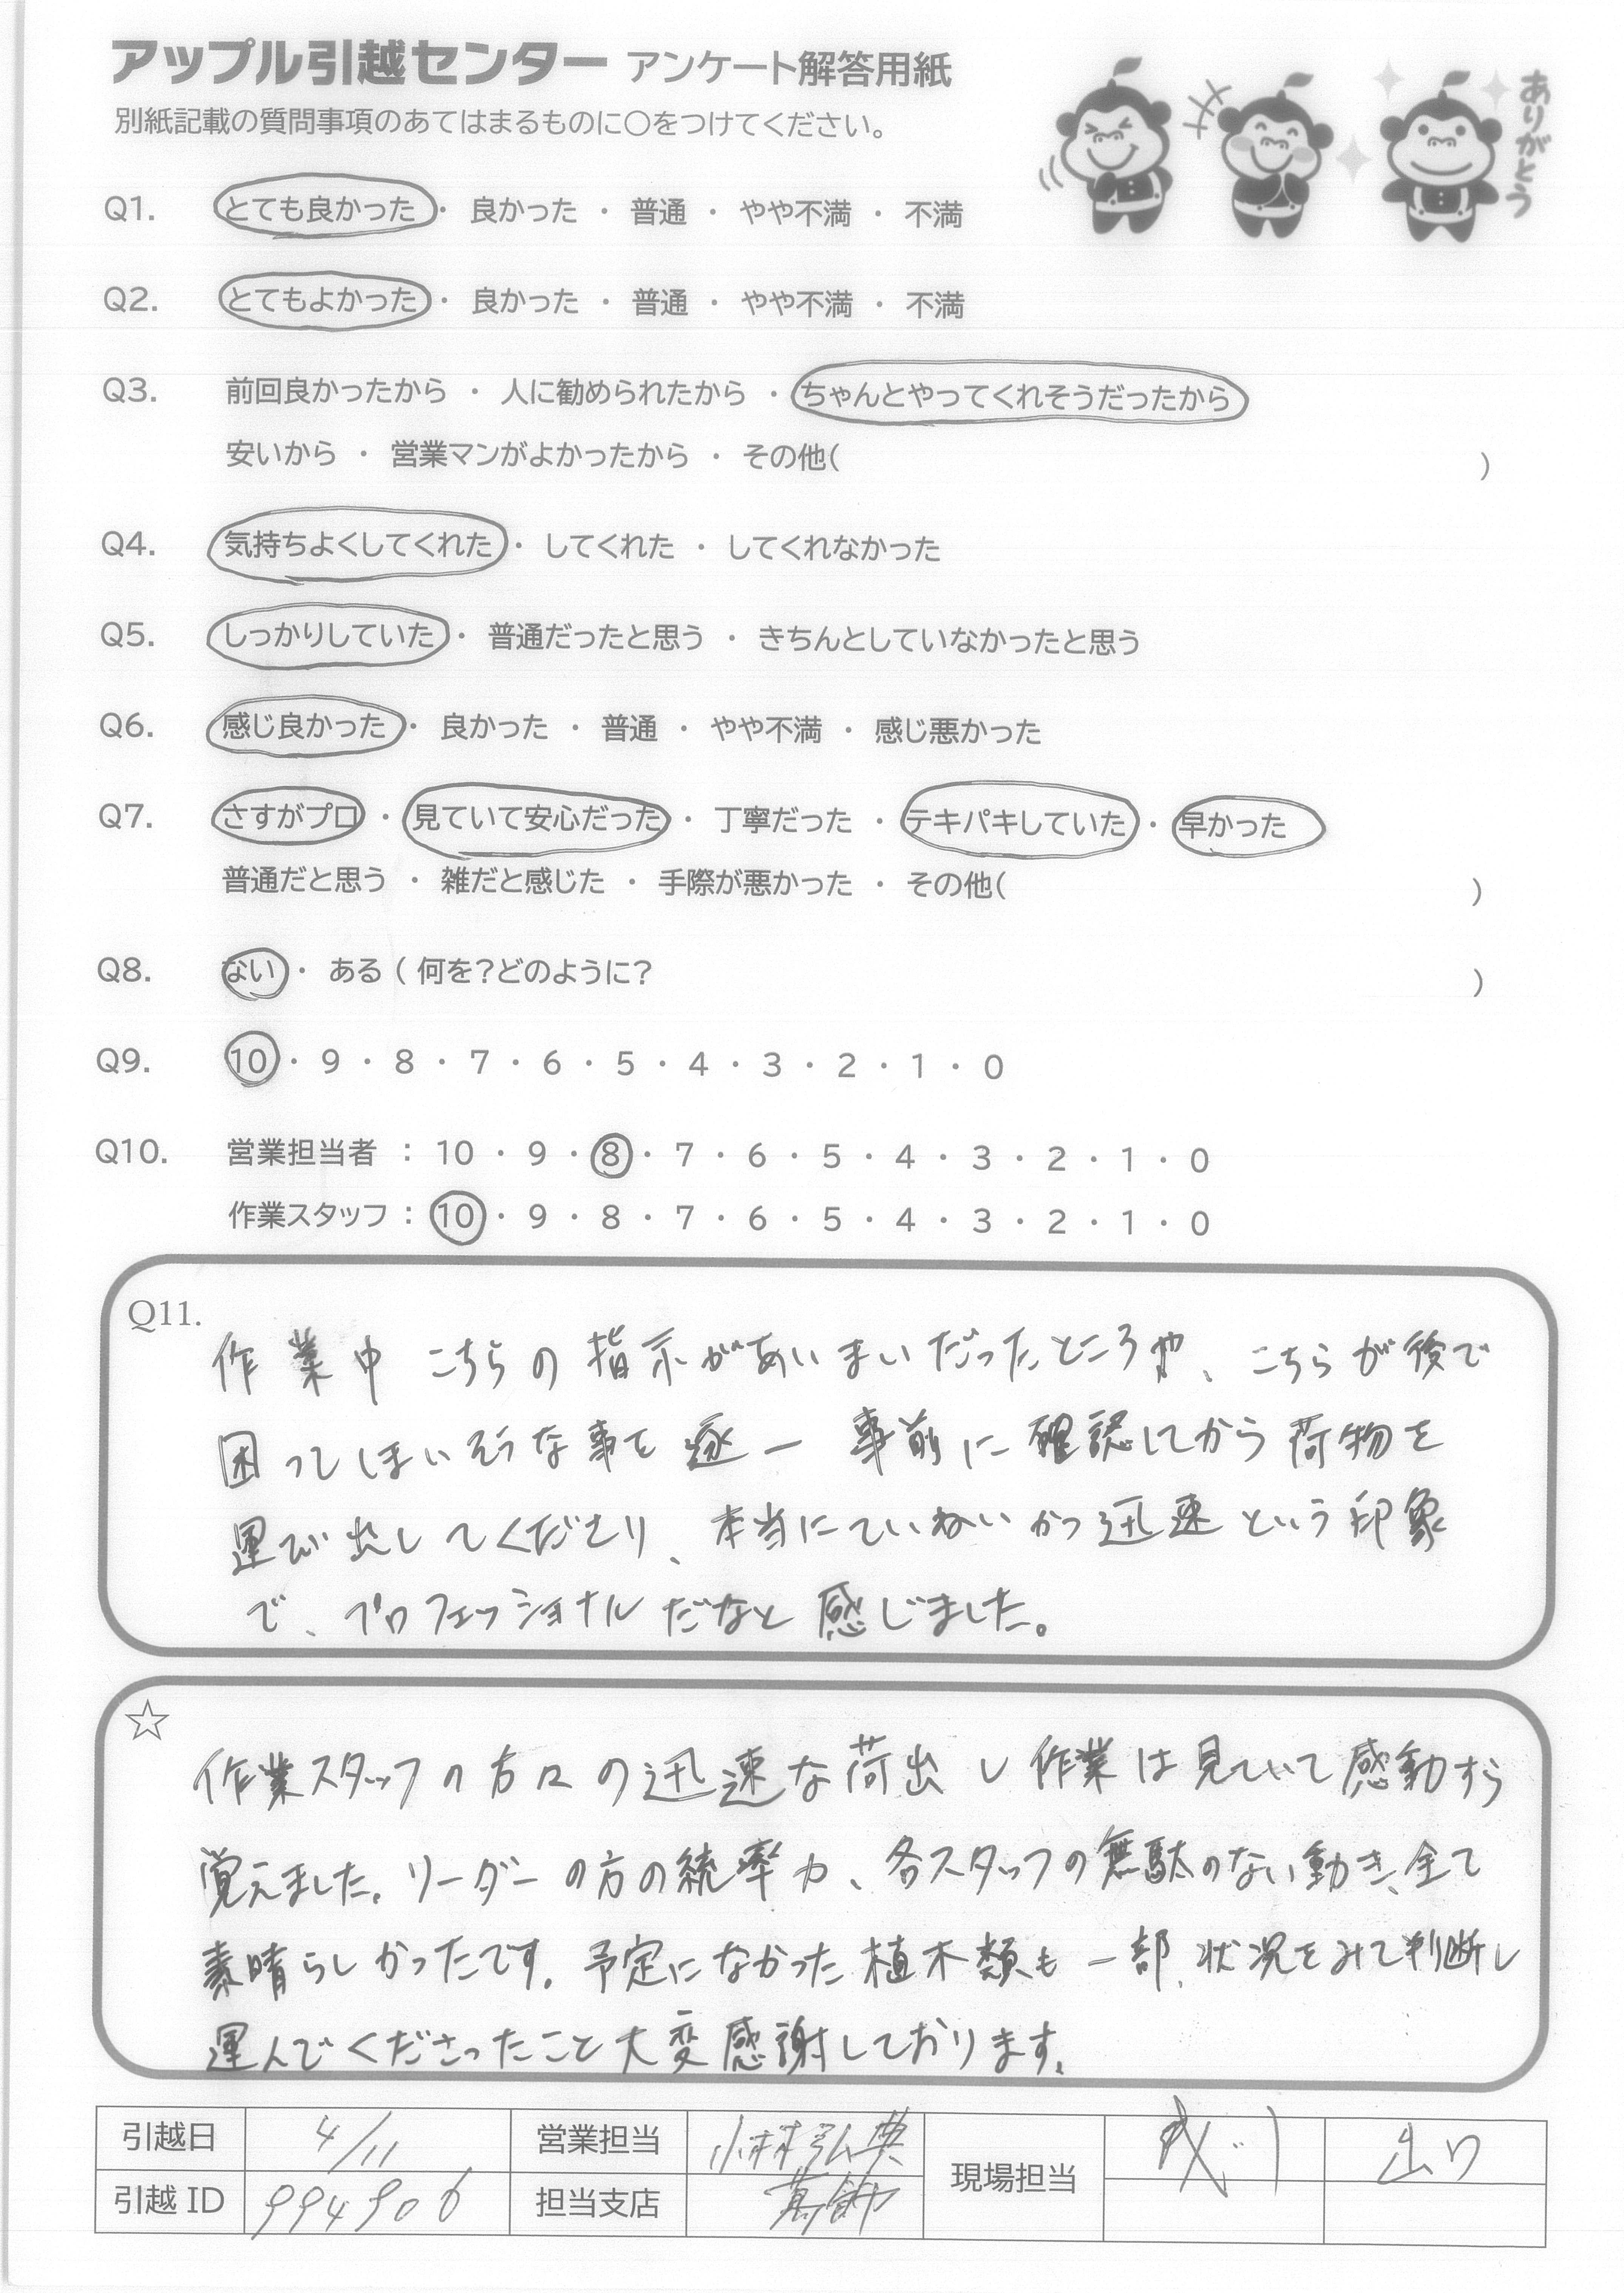 アップル引越センター アンケート解答用紙
別紙記載の質問事項のあてはまるものに○をつけてください。
ありがとう
Q1. とても良かった ・ 良かった ・ 普通 ・ やや不満 ・ 不満
Q2. とてもよかった ・ 良かった ・ 普通 ・ やや不満 ・ 不満
Q3. 前回良かったから ・ 人に勧められたから ・ ちゃんとやってくれそうだったから
安いから ・ 営業マンがよかったから ・ その他( )
Q4. 気持ちよくしてくれた ・ してくれた ・ してくれなかった
Q5. しっかりしていた ・ 普通だったと思う ・ きちんとしていなかったと思う
Q6. 感じ良かった ・ 良かった ・ 普通 ・ やや不満 ・ 感じ悪かった
Q7. さすがプロ ・ 見ていて安心だった ・ 丁寧だった ・ テキパキしていた ・ 早かった
普通だと思う ・ 雑だと感じた ・ 手際が悪かった ・ その他( )
Q8. ない ・ ある ( 何を?どのように? )
Q9. 10 ・ 9 ・ 8 ・ 7 ・ 6 ・ 5 ・ 4 ・ 3 ・ 2 ・ 1 ・ 0
Q10. 営業担当者 : 10 ・ 9 ・ 8 ・ 7 ・ 6 ・ 5 ・ 4 ・ 3 ・ 2 ・ 1 ・ 0
作業スタッフ : 10 ・ 9 ・ 8 ・ 7 ・ 6 ・ 5 ・ 4 ・ 3 ・ 2 ・ 1 ・ 0
Q11.
作業中 こちらの指示があいまいだったところや、こちらが後で
困ってしまいそうな事を逐一 事前に確認してから荷物を
運び出してくださり、本当にていねいかつ迅速という印象
で、プロフェッショナルだなと感じました。
☆
作業スタッフの方々の迅速な荷出し作業は見ていて感動すら
覚えました。リーダーの方の統率力、各スタッフの無駄のない動き、全て
素晴らしかったです。予定になかった植木類も一部、状況をみて判断し
運んでくださったこと大変感謝しております。
引越日 4/11 営業担当 小林弘典 現場担当 出口
引越 ID 994906 担当支店 葛飾